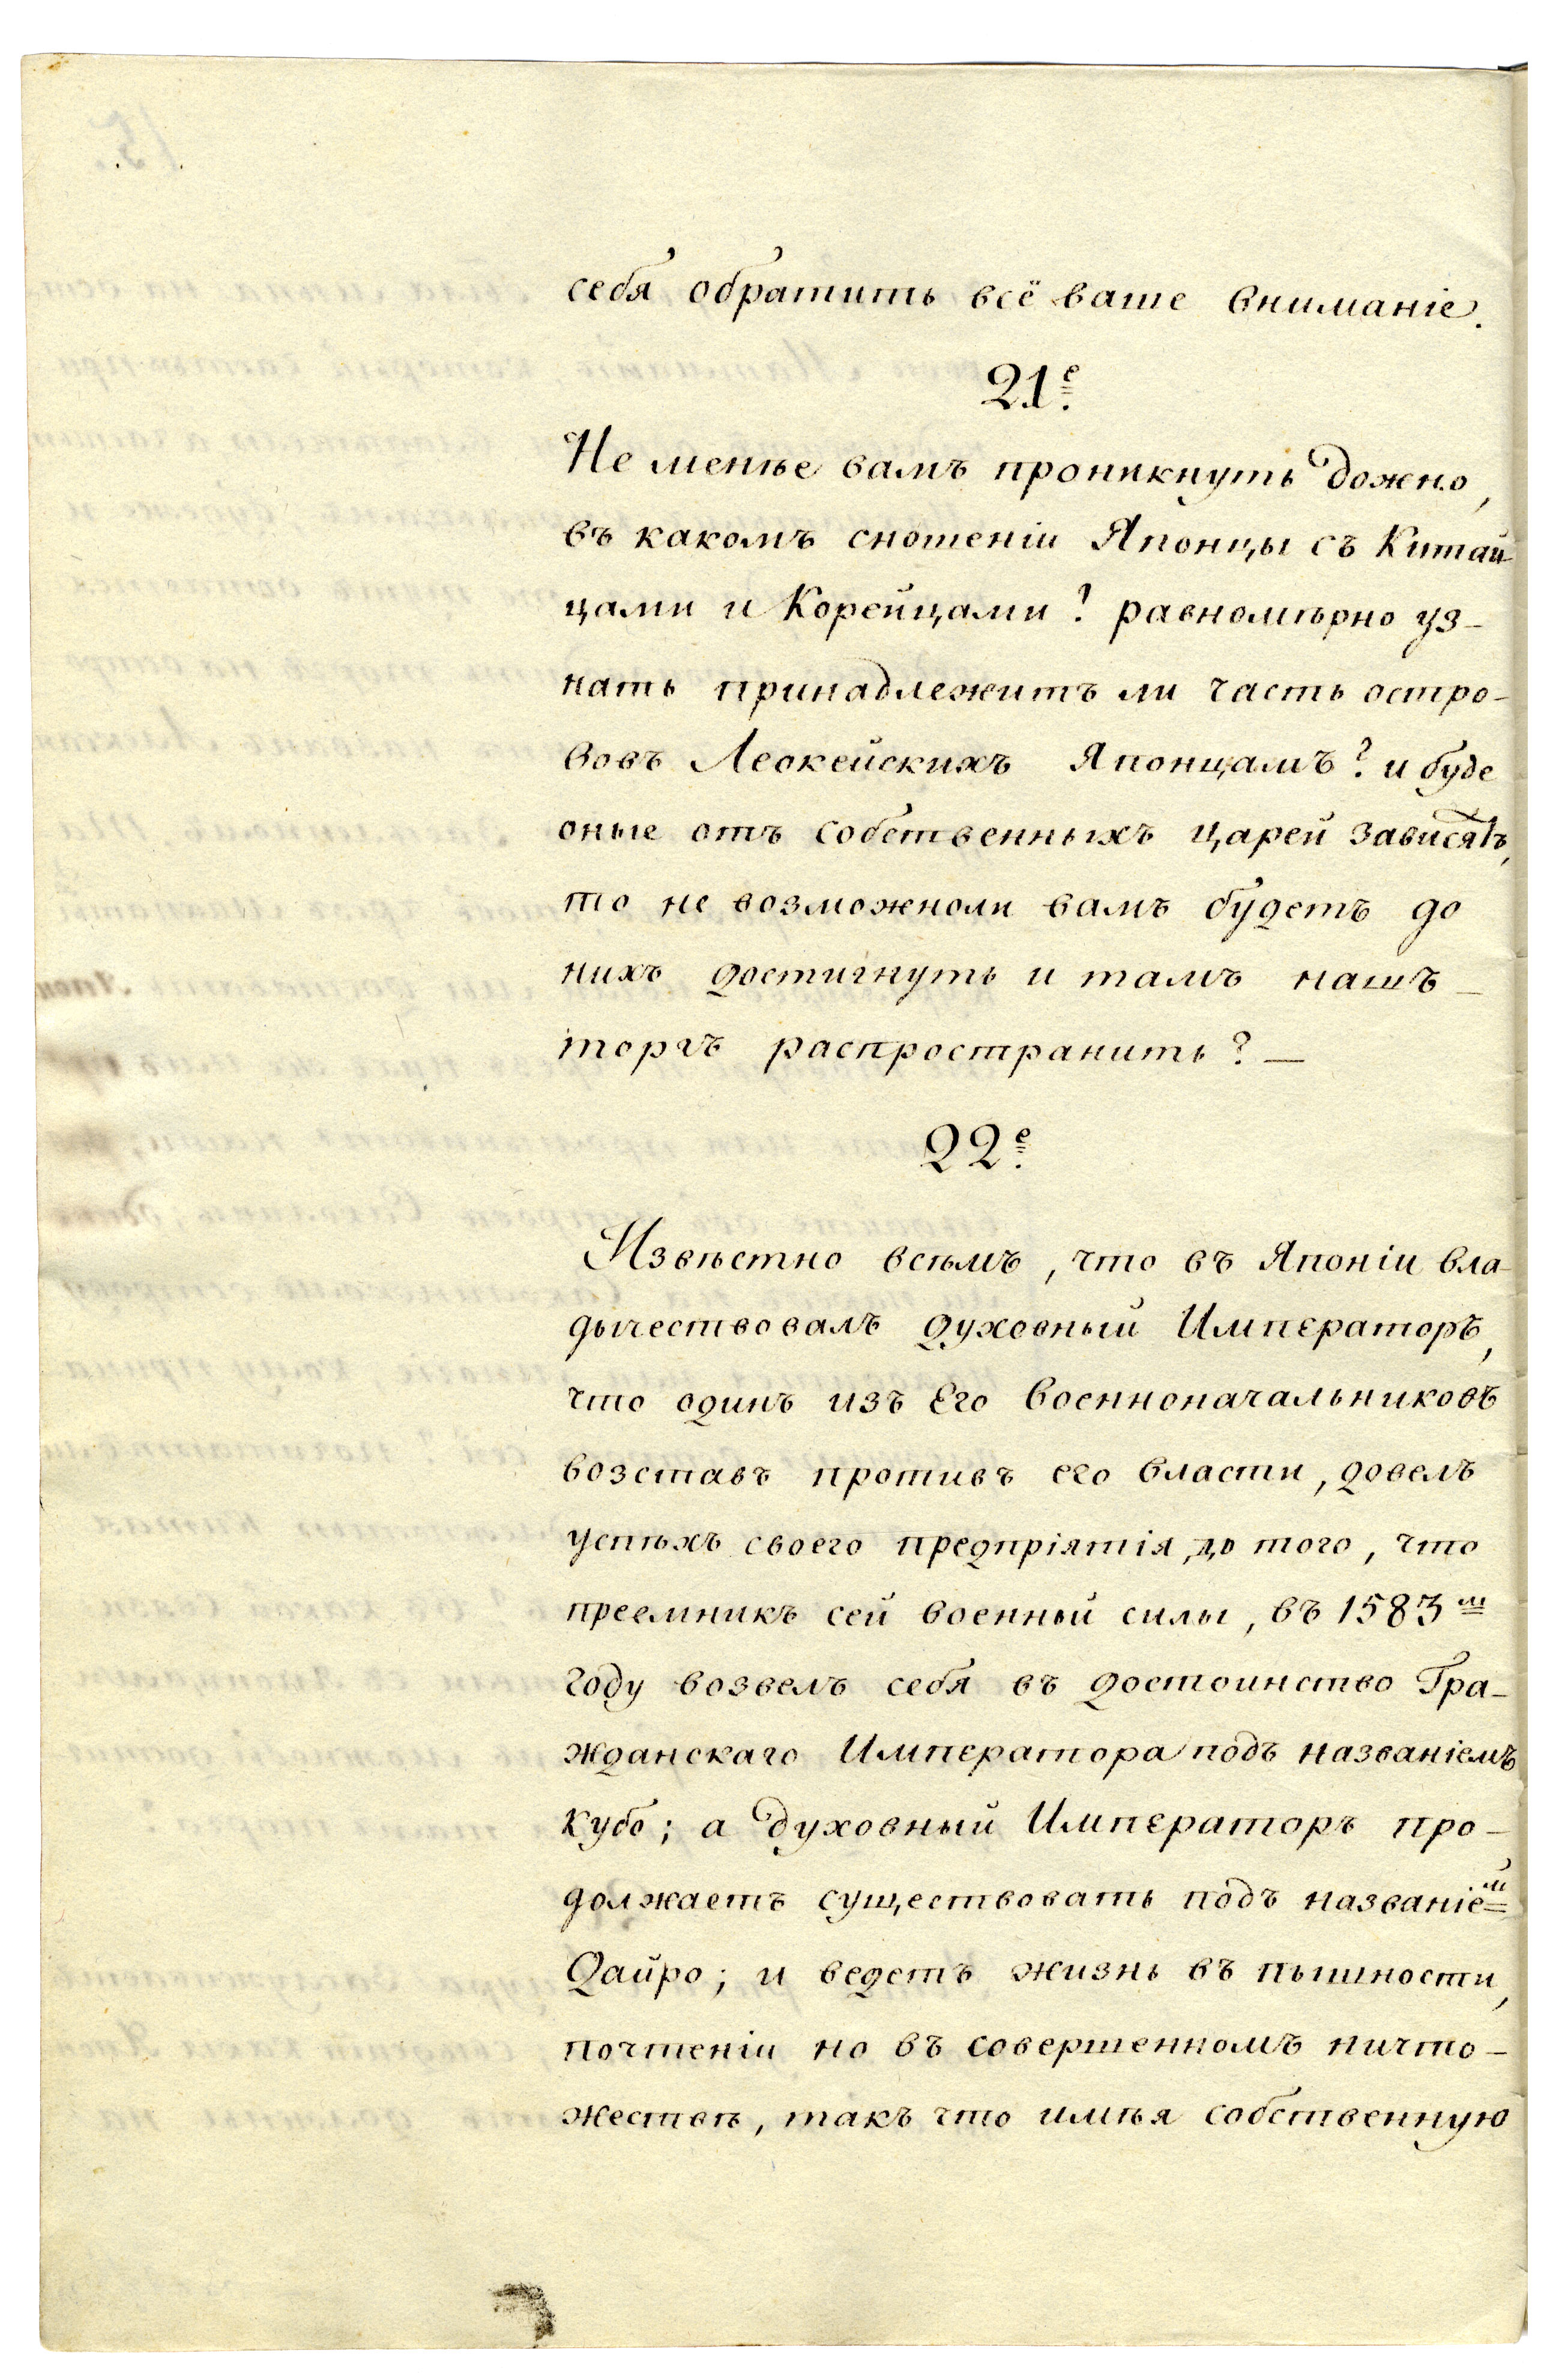 себя обратить всё ваше вниманіе.
21е
Не менѣе вамъ проникнуть дожно,
въ какомъ сношеніи Японцы съ Китай
цами и Корейцами? равномѣрно уз-
нать принадлежитъ ли часть остро-
вовъ Леокейскихъ Японцамъ? и буде
оные отъ собственныхъ царей зависятъ,
то не возможноли вамъ будетъ до
нихъ достигнуть и тамъ нашъ —
торгъ распространить? —
22е
Извѣстно всѣмъ, что въ Японіи вла-
дычествовалъ духовный Императоръ,
что одинъ изъ Его военноначальниковъ
возставъ противъ его власти, довелъ
успѣхъ своего предпріятія, до того, что
преемникъ сей военный силы, въ 1583м
году возвелъ себя въ достоинство Гра-
жданскаго Императора подъ названіемъ
Кубо; а духовный Императоръ про-
должаетъ существовать подъ названіем
Дайро; и ведетъ жизнь въ пышности,
почтеніи но въ совершенномъ ничто-
жествѣ, такъ что имѣя собственную